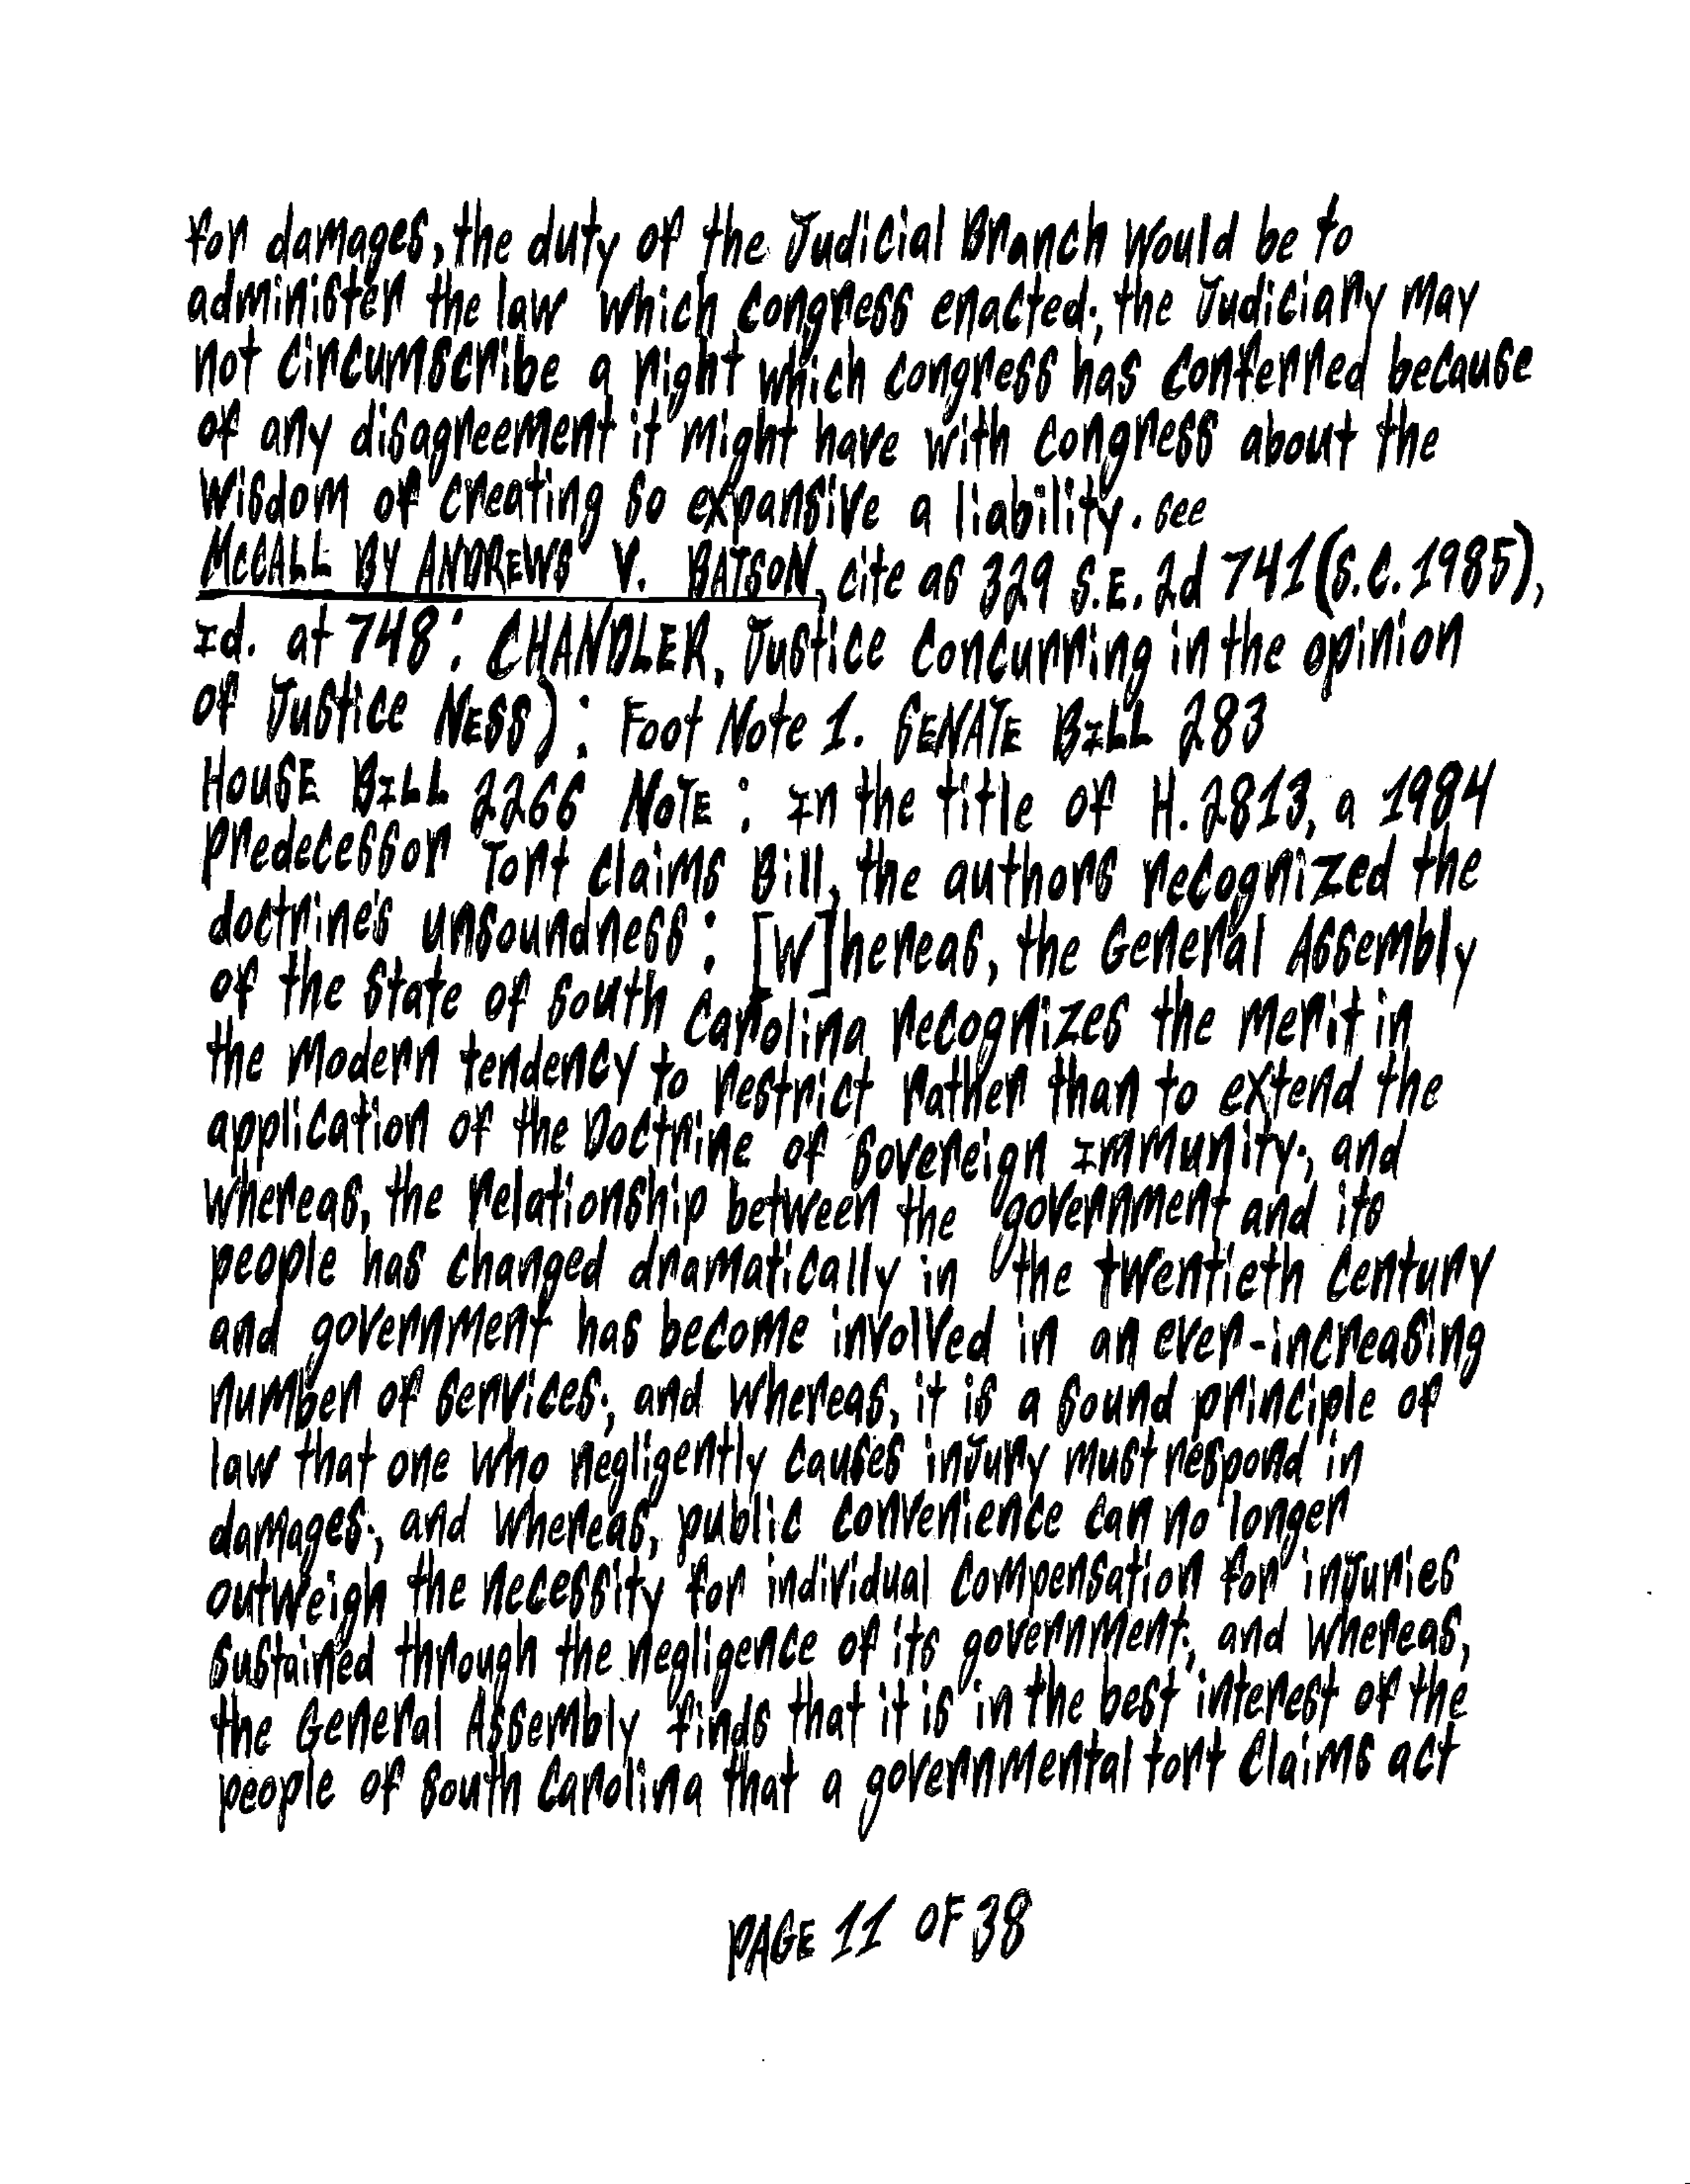 for damages, the duty of the Judicial Branch would be to
administer the law which congress enacted; the Judiciary may
not circumscribe a right which congress has conferred because
of any disagreement it might have with congress about the
wisdom of creating so expansive a liability. see
McCALL BY ANDREWS V. BATSON, cite as 329 S.E. 2d 741 (S.C. 1985),
Id. at 748: CHANDLER, Justice concurring in the opinion
of Justice NESS): Foot Note 1. SENATE BILL 283
HOUSE BILL 2266 NOTE: In the title of H. 2813, a 1984
predecessor Tort Claims Bill, the authors recognized the
doctrine's unsoundness: [W]hereas, the General Assembly
of the State of South Carolina recognizes the merit in
the modern tendency to restrict rather than to extend the
application of the Doctrine of Sovereign Immunity; and
whereas, the relationship between the government and its
people has changed dramatically in the twentieth century
and government has become involved in an ever-increasing
number of services; and whereas, it is a sound principle of
law that one who negligently causes injury must respond in
damages; and whereas, public convenience can no longer
outweigh the necessity for individual compensation for injuries
sustained through the negligence of its government; and whereas,
the General Assembly finds that it is in the best interest of the
people of South Carolina that a governmental tort claims act
PAGE 11 OF 38